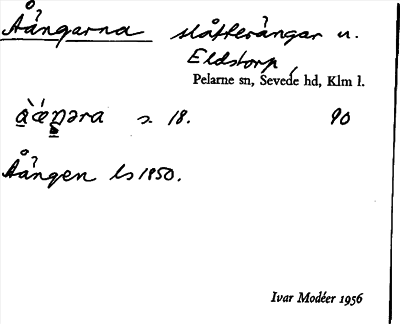 Åängarna slåtterängar u.
Eldstorp,
Pelarne sn, Sevede hd, Klm l.
s. 18. 90
Åängen ls 1850.
Ivar Modéer 1956